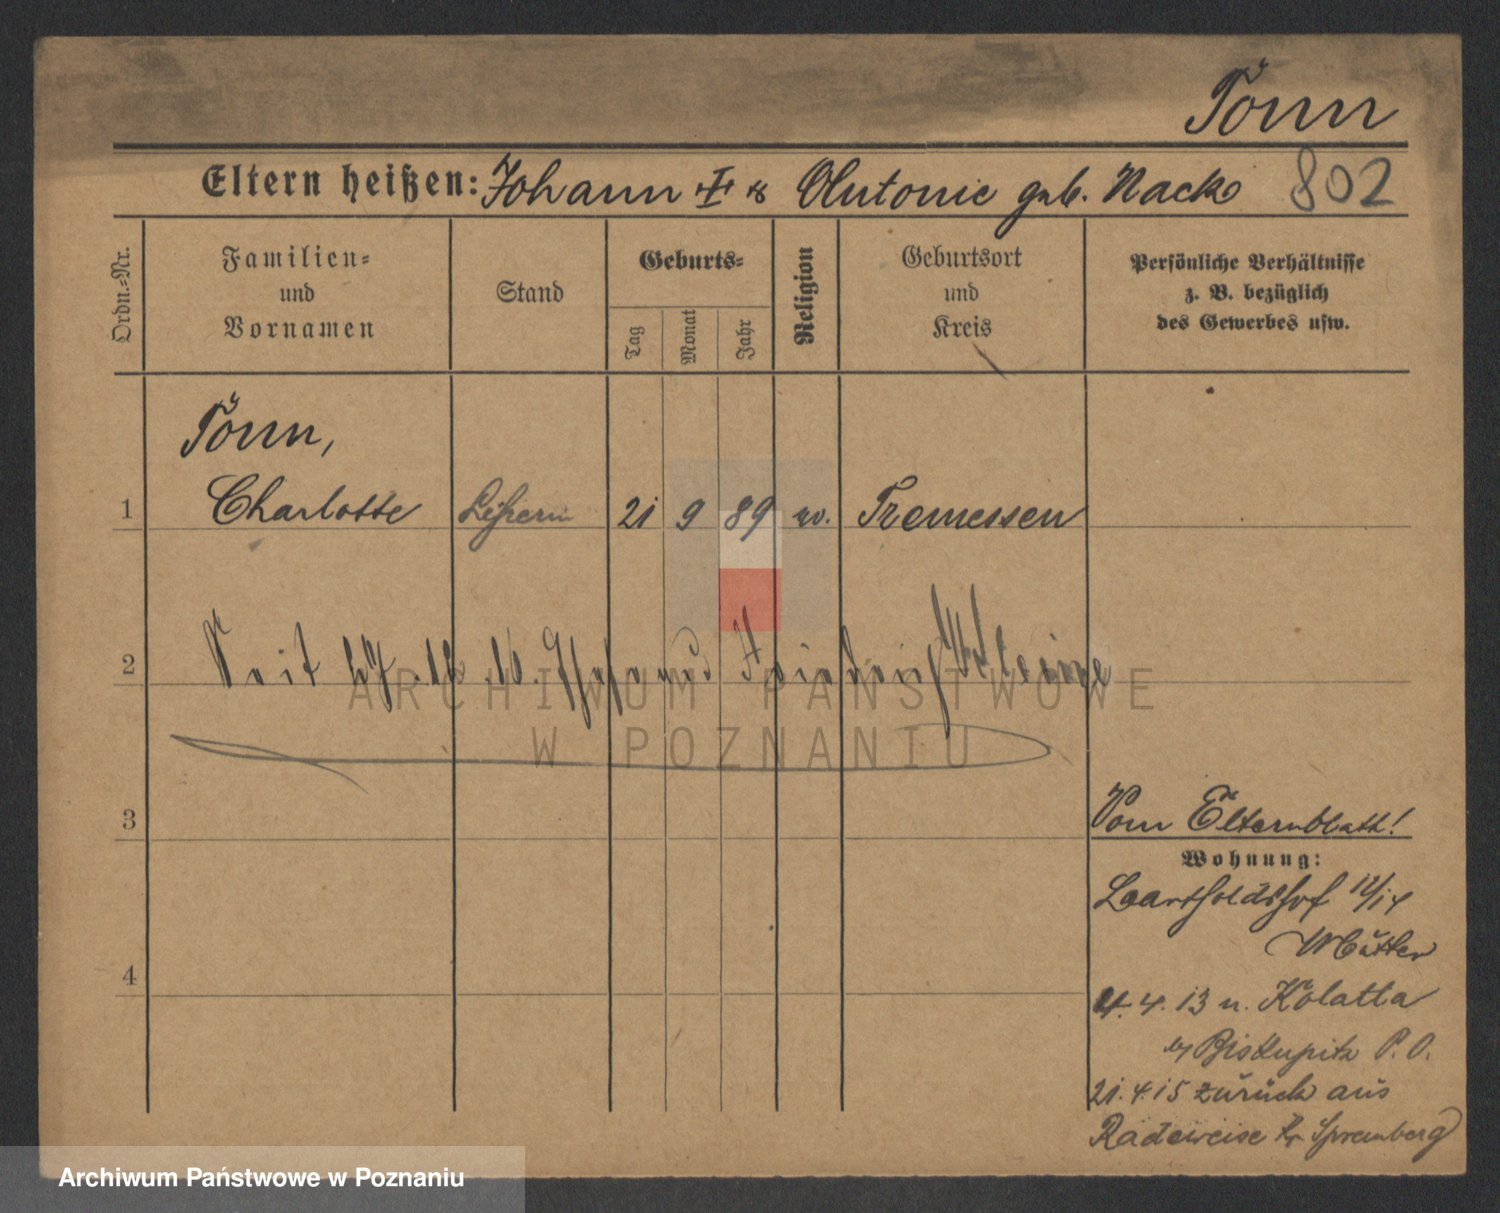 Tönn
Eltern heißen: Johann I & Antonie geb. Nack
802
Ordn.-Nr.
Familien-
und
Vornamen
Stand
Geburts-
Tag
Monat
Jahr
Religion
Geburtsort
und
Kreis
Persönliche Verhältnisse
z. B. bezüglich
des Gewerbes usw.
Tönn,
1 Charlotte 21 9 89 Tremessen
2 Seit 27. 12. 16. Ehefrau
ARCHIWUM PAŃSTWOWE
W POZNANIU
3
Vom Elternblatt!
Wohnung:
12/14
Mutter
4
4. 13 n. Kolatta
b/ Biskupitz P. O.
21. 4. 15 zurück aus
Radeweise Kr Spremberg
Archiwum Państwowe w Poznaniu